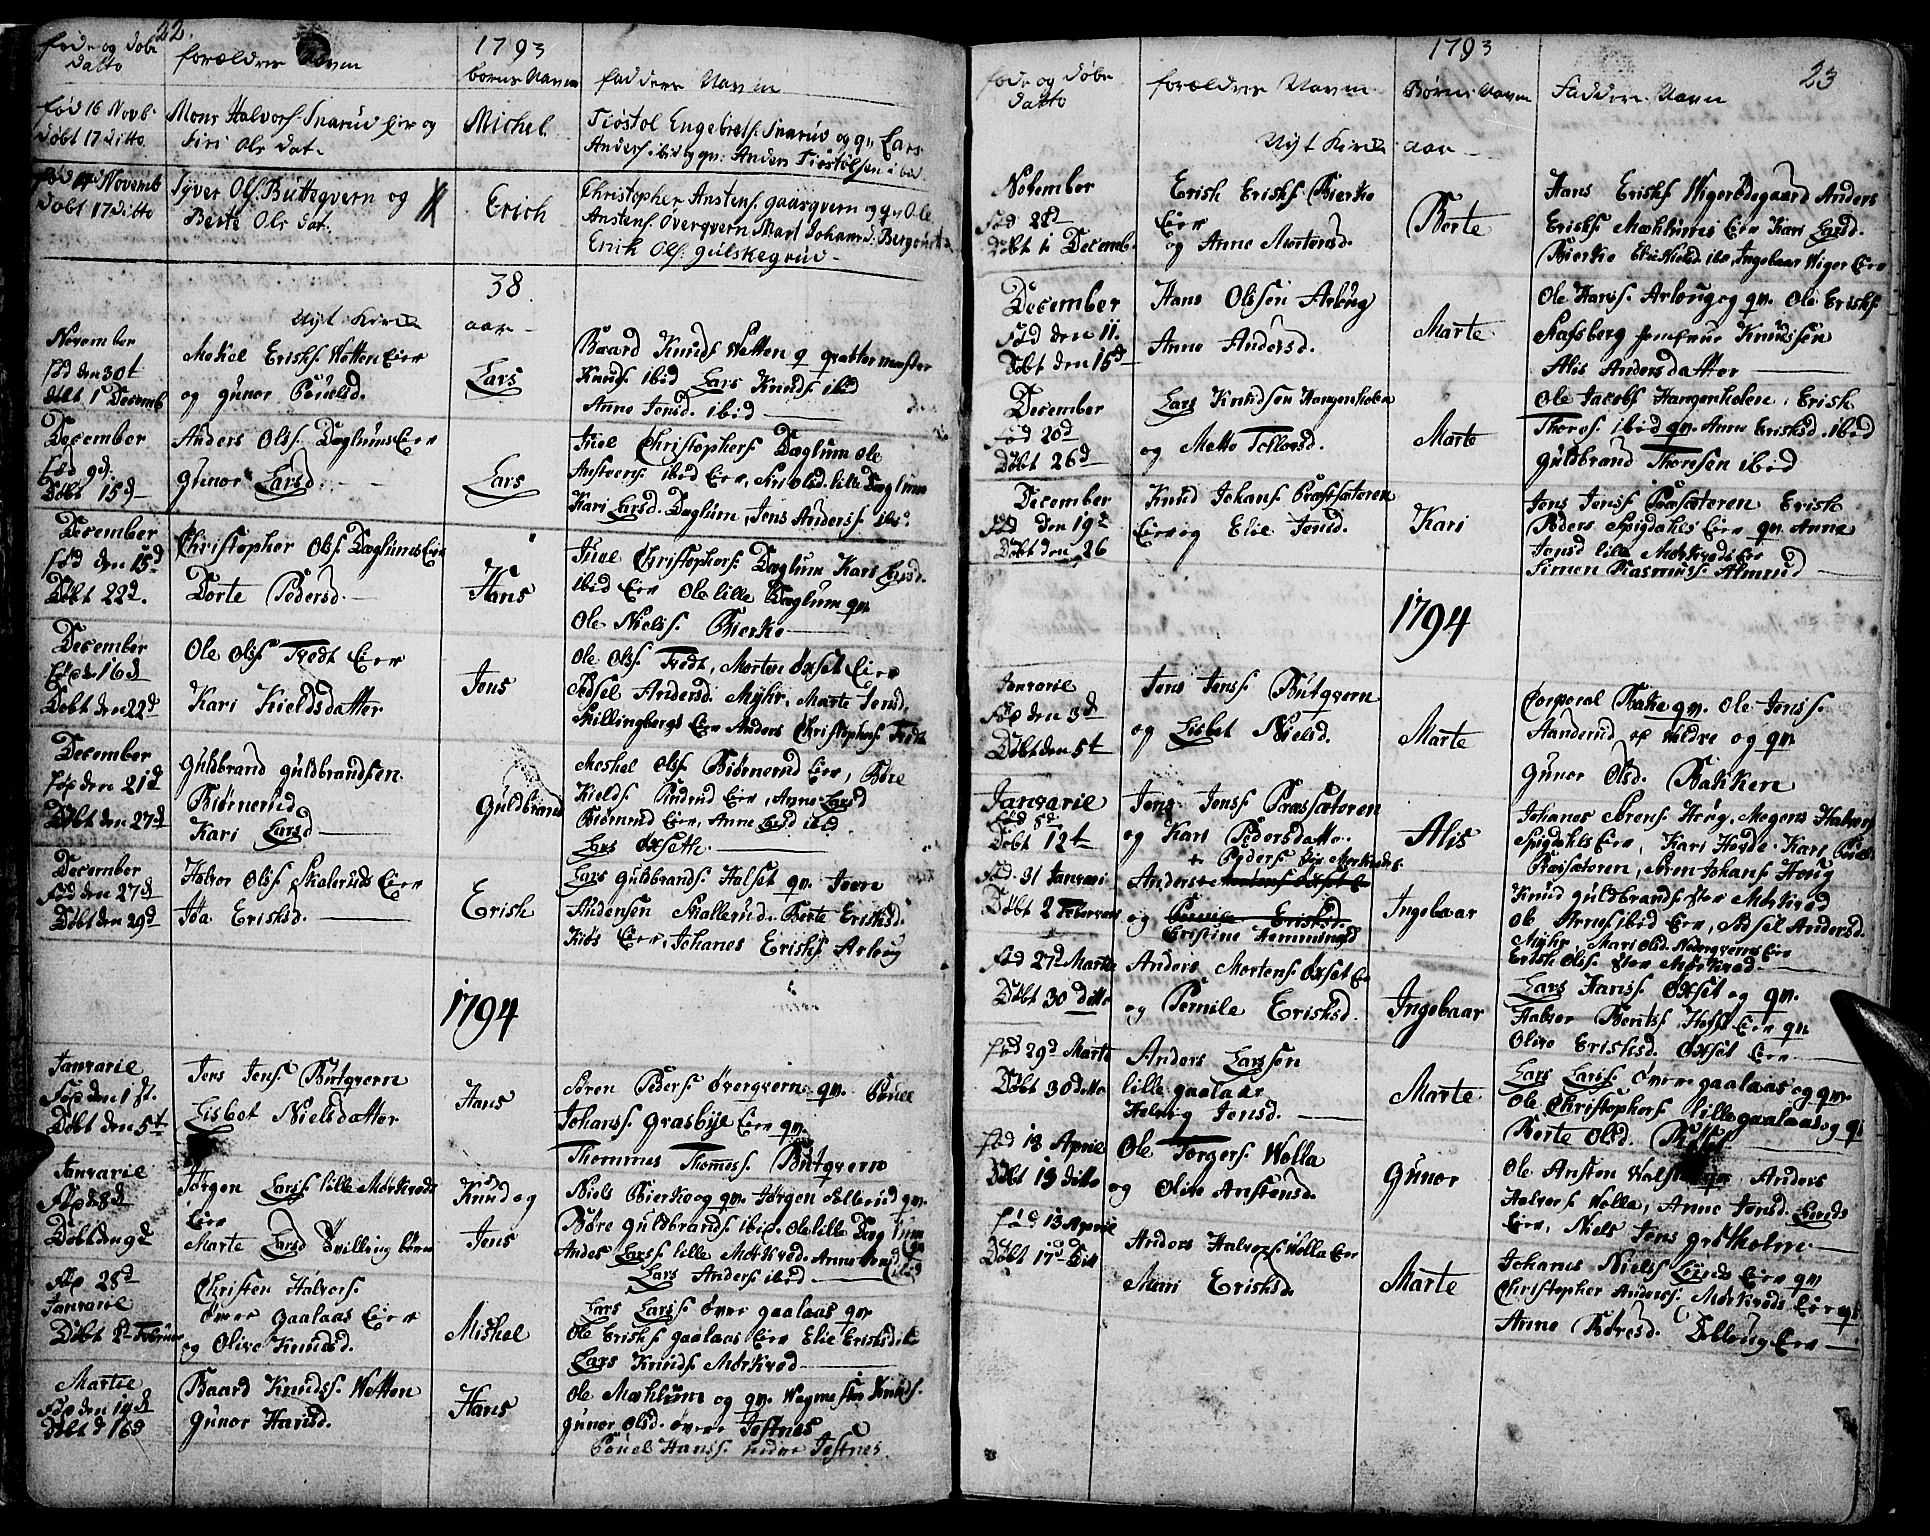 22.
føds og døbt Datto
forældres Navne
1793
børns Navne
faddere Navne
fød 16 Novb.
Døbt 17 ditto
Mons Halvors. Snarud Eier og
Siri Ols Dat.
Michel
Tiostol Engebrets. Snarud og qv. Lars
Anders. ibid og qv. Anders Tiostolsen ibid
fød 14 Novemb
Døbt 17 ditto
Iver Ols. Buttegvern og
Berte Ols Dat.
Erich
Christopher Anstens. gaasqvern og qv. Ole
Anstens. øvergvern Mart Johansd.
Erik Ols. gulskegrud
38.
Nyt Kirke aar
November
fød den 30t
døbt 1 Decemb
Mekel Erichs. Wetten Eier
og gunor Povelsd.
Lars
Baard Knuds. Wetten
Knuds. ibid Lars Knuds. ibid
Anne Jensd. ibid
December
fød 9d.
Døbt 15d
Anders Ols. Døglums Eier
gunor Larsd.
Lars
Juel Christophers. Døglum Ole
Anstens. ibid Eier, Siri Olsd. lille Døglum
Kari Larsd. Døglum, Jens Anders. ibd.
December
fød den 15d
Døbt 22d.
Christopher Ols. Døglums Eier
Dorte Pedersd.
Hans
Juel Christophers. Døglum Kari Larsd.
ibid Eier Ole lille Døglum qv.
Ole Niels. Bierke
December
Fød 16d
Døbt den 22d
Ole Ols. Tvedt Eier
Kari Kieldsdatter
Jens
Ole Ols. Tvedt, Morten Øxset Eier
Sidsel Andersd. Myhr, Marte Jensd.
Skillingbergs Eier Anders Christophers. Tvedt
December
Fød den 21d
Døbt den 27d
Guldbrand guldbrandsen
Biørnerud
Kari Larsd
Guldbrand
Meshel Ols. Biørnerud Eier, Børe
Kields. Rudrud Eier, Anne Larsd
Biørnrud Eier, Anne ibid
Lars Øxseth
December
Fød den 27d
Døbt den 29d
Halvor Ols. Skalerud Eier
Ida Erichsd.
Erich
Lars guldbrands. Halset qv. Joere
Audensen Skallerud. Berte Erichsd.
Kiøs Eier, Johanes Erichs. Arloug
1794
Janvarie
Fød den 1 st.
Døbt den 5t
Jens Jens. Butqvern
Lisbet Nielsdatter
Hans
Søren Peders. Øvergvern qv. Povel
Johans. Grasbye Eier qv.
Thommes Thomes. Butqvern
Janvarie
Fød 8d
Døbt den 9d
Jørgen Lars. lille Mørkvods
Eier
Marte Larsd Tvilling børn
Knud og
Jens
Niels Bierke og qv. Jørgen Sollerud qv.
Børe guldbrands. ibid. Ole lille Døglum
Andes Lars. lille Mørkvod. Anne Jensd ibid
Lars Anders ibid
Fød 28d
Janvarie
Døbt 2d Februar
Christen Halvors.
Øvre Gaalaas Eier
og Olive Knudsd.
Mishel
Lars Lars. Øvre gaalaas qv.
Ole Erichs. gaalaas Eier Elie Erichsd. ib
Lars Knuds Mørkvod
Martie
Fød den 14d
Døbt d 16d
Baard Knuds. Wetten
Gunor Hansd.
Hans
Ole Mæhlum og qv. Wegmester Knuds.
gunor Olsd. øvre Jestnes
Povel Hans. nedre Jestnes.
1793
23
føds og døbte
Datto
forældres Navne
Børns Navne
Faddere Navne
Nyt Kirke aar
November
fød 28d
Døbt 1 Decemb.
Erich Erichs. Bierke
Eier
og Anne Mortensd.
Berte
Hans Erichs. Wigerødegaard Anders
Erichs. Mæhlums Eier Kari Larsd.
Bierke Elie Nielsd ibd, Ingebaar Wiger Eier
December
Fød den 11.
Døbt den 15d
Hans Olssen Arloug
Anne Andersd.
Marte
Ole Hans. Arloug og qv. Ole Erichs.
Stafsberg Jomfrue Knudssen
Alis Andersdatter
December
Fød 20d
Døbt 26d
Lars Knudsen Hangenholen
og Mette Tollersd.
Marte
Ole Jacobs Hangenholen, Erich
Thores. ibid qv. Anne Erichsd. ibid
Guldbrand Thoresen ibid
December
Fød den 19d
Døbt den 26
Knud Johans. Præstsæteren
Eier og Elie Jensd.
Kari
Jens Jens. Præsæteren Erich
Peders. Spigdahls Eier qv. Anne
Jensd lille Mørkvods Eier
Simen Rasmuss. Almrud
1794
Janvarie
Fød den 3d
Døbt den 5t
Jens Jens. Butqvern
og Lisbet Nielsd.
Marte
Corporal Bakke qv. Ole Jenss.
Aanderud og Veldre og qv.
Gunor Olsd. Bakken
Janvarie
Fød 8d
Døbt 12te
Jens Jens. Præssæteren
og Kari Pedersdatter
Alis
Johanes Sørens. Houg, Mogens Halvors
Spigdahls Eier, Kari Hovde. Kari Povels
Præsæteren, Søren Johans Houg
Fød 31 Janvari
Døbt 2 Februari
Peders. Mørkvods
Anders Mortens Øxset E
og Pernille Erichsd.
Cristine Hemmingsd
Ingebaar
Knud guldbrands. Stor Mørkvod
Ole Arnes. ibid Eier, Sidsel Andersd.
Myhr, Mari Olsd. Nedergverns Eier
Erich Ols. Stor Mørkvod
Fød 27d Marte
Døbt 30 ditto
Anders Mortens. Øxset Eier
og Pernile Erichsd.
Ingebaar
Lars Hans. Øxset og qv.
Halvor Berits. Hofs Eier qv
Olive Erichsd. Øxset Eier
fød 29d Marte
Døbt 30 ditto
Anders Larssen
lille gaalaas
Helvig Jensd.
Marte
Lars Lars. Øvre gaalaas og qv.
Ole Christophers. lille gaalaas og q
Berte Olsd.
fød 18 April
Døbt 19 ditto
Ole Torgers. Wolla
og Olive Anstensd.
Gunor
Ole Ansten Halstens qv. Anders
Halvors. Wolla, Anne Jensd. Lunds
Eier, Niels Jens Grøtholme
fød 13 April
Døbt 17d Dit
Anders Halvors. Wolla Eier
Mari Erichsd.
Marte
Johans Niels. Lunds Eier qv
Christopher Anders. Mørkvods Eier qv
Anne Børesd. Dobloug Eier